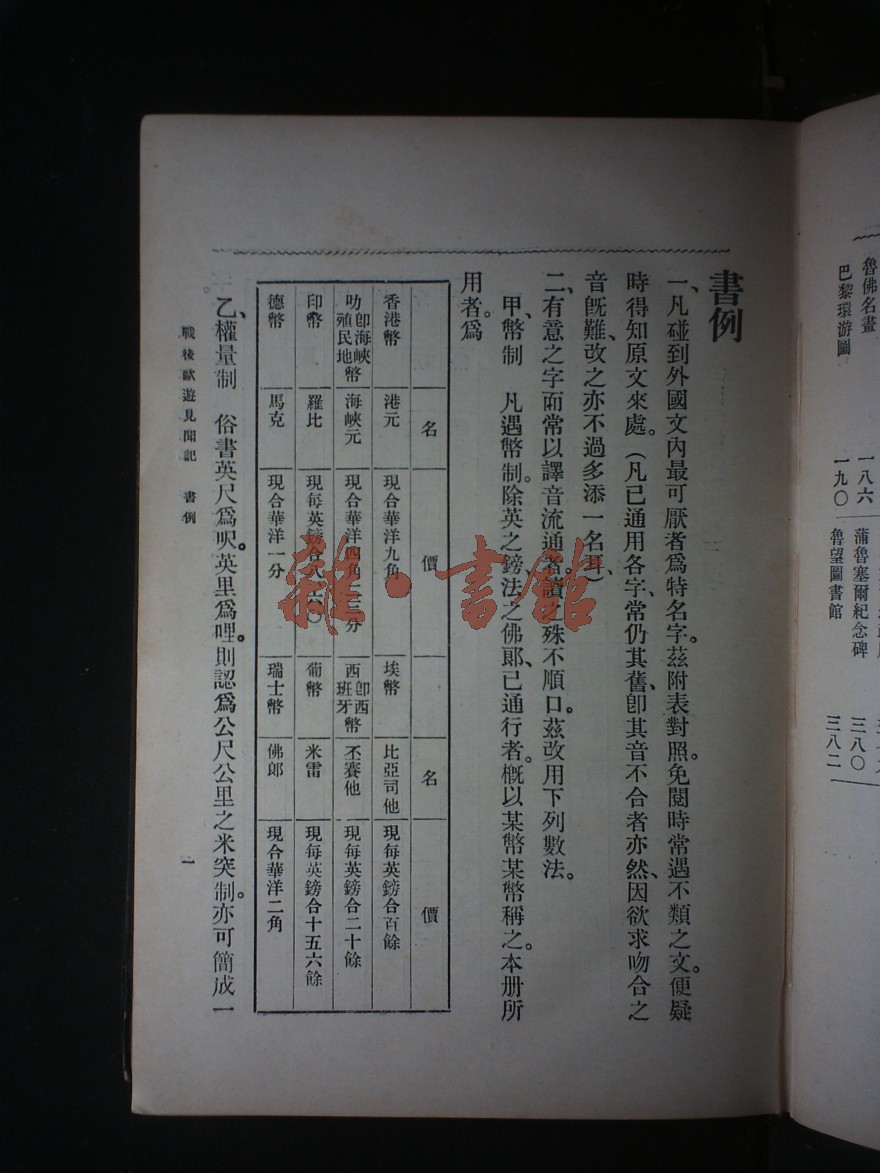 魯佛名畫 一八六
巴黎環游圖 一九〇
蒲魯塞爾紀念碑 三八〇
魯望圖書館 三八二
書例
一、凡碰到外國文內最可厭者爲特名字。茲附表對照。免閱時常遇不類之文。便疑
時得知原文來處。(凡已通用各字、常仍其舊、卽其音不合者亦然、因欲求吻合之
音既難、改之亦不過多添一名耳、)
二、有意之字而常以譯音流通者。讀之殊不順口。茲改用下列數法。
甲、幣制 凡遇幣制。除英之鎊法之佛郎、已通行者。概以某幣某幣稱之。本册所
用者。爲
名 價 名 價
香港幣 港元 現合華洋九角 埃幣 比亞司他 現每英鎊合百餘
叻卽海峽殖民地幣 海峽元 現合華洋四角二三分 西卽西班牙幣 丕賽他 現每英鎊合二十餘
印幣 羅比 現每英鎊合 葡幣 米雷 現每英鎊合十五六餘
德幣 馬克 現合華洋一分 瑞士幣 佛郎 現合華洋二角
乙、權量制 俗書英尺爲呎。英里爲哩。則認爲公尺公里之米突制。亦可簡成一
戰後歐遊見聞記 書例 一
雜·書館